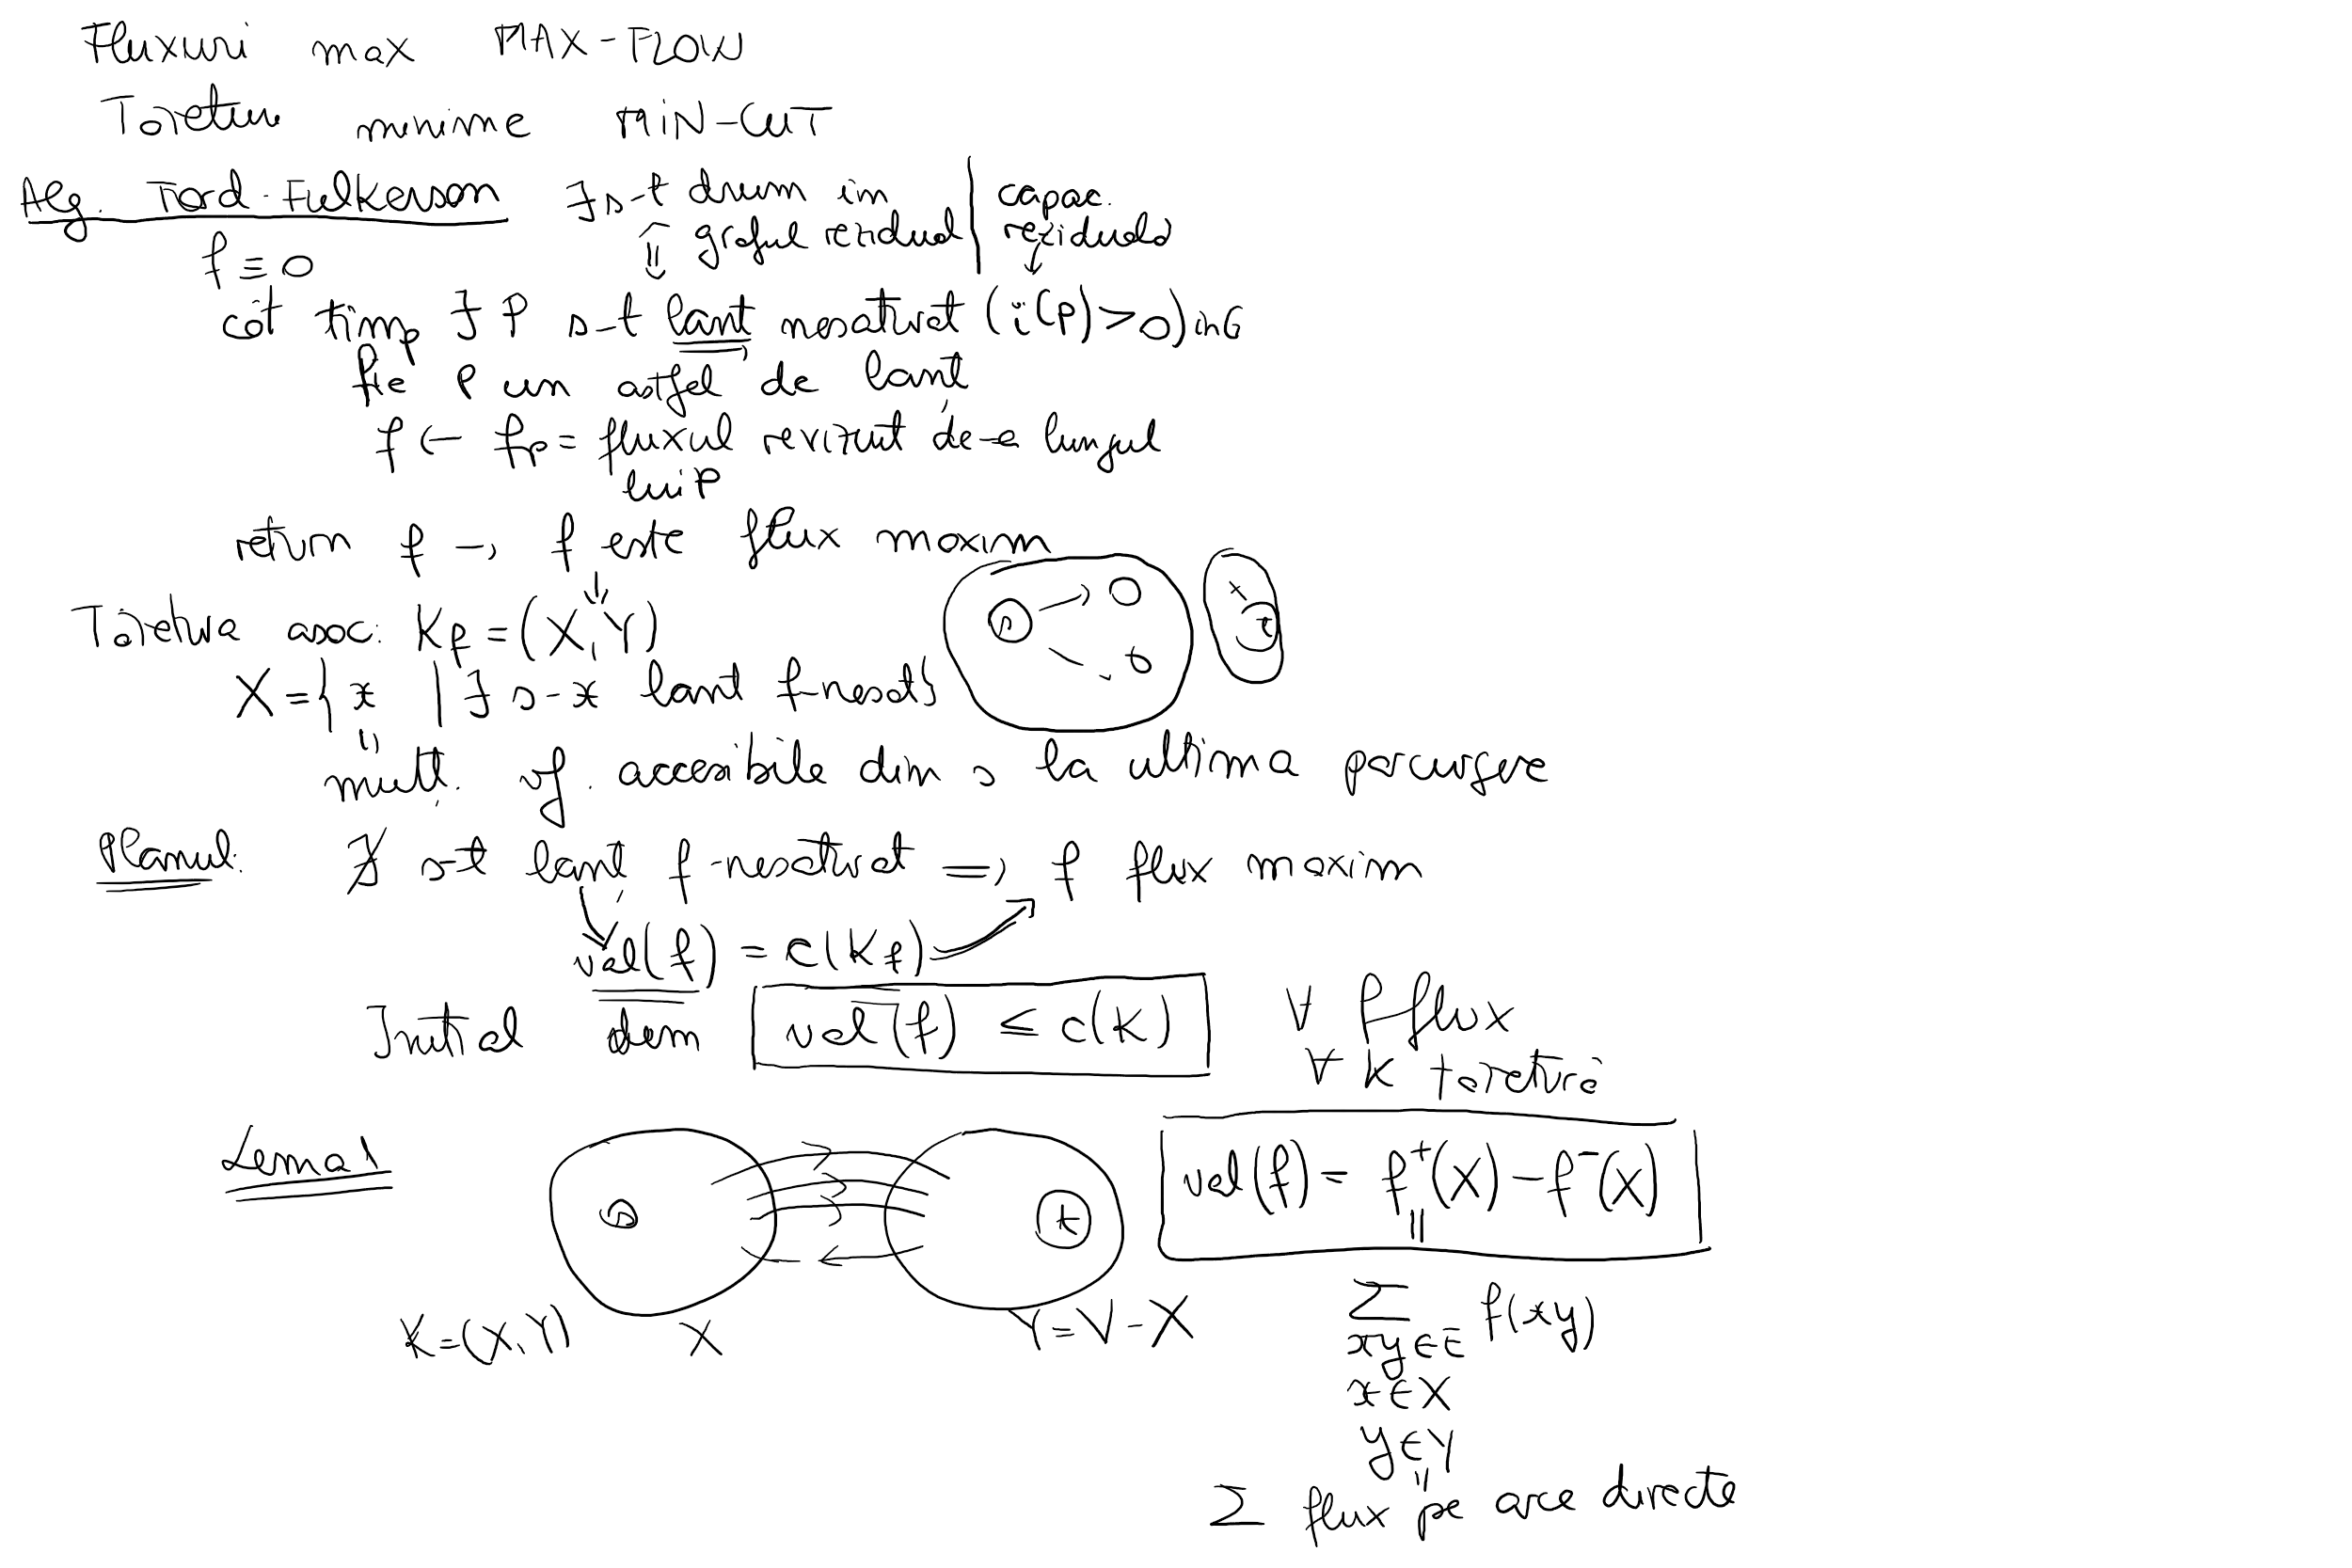 Fluxuri max MAX-FLOW
Tăieturi minime MIN-CUT
Alg. Ford-Fulkerson ∃ s-t drum în | capac.
graful rezidual | reziduală
f ≡ 0
cât timp ∃ P s-t lanț nesaturat (i(P)>0) în G
fie P un astfel de lanț
f ← f_P = fluxul revizuit de-a lungul
lui P
return f → f este flux maxim
Tăietura asoc: K_f = (X, Y)
s
t
X = { x | ∃ s-x lanț f-nesat}
mulț. vf. accesibile din s la ultima parcurgere
Planul: ∄ s-t lanț f-nesaturat ⇒ f flux maxim
val(f) = c(K_f)
Initial dem val(f) ≤ c(K) ∀ f flux
∀ K tăietură
Lema 1
s
t
val(f) = f⁺(X) - f⁻(X)
K=(X,Y) X Y=V-X
Σ f(xy)
xy∈E
x∈X
y∈Y
Σ flux pe arce directe